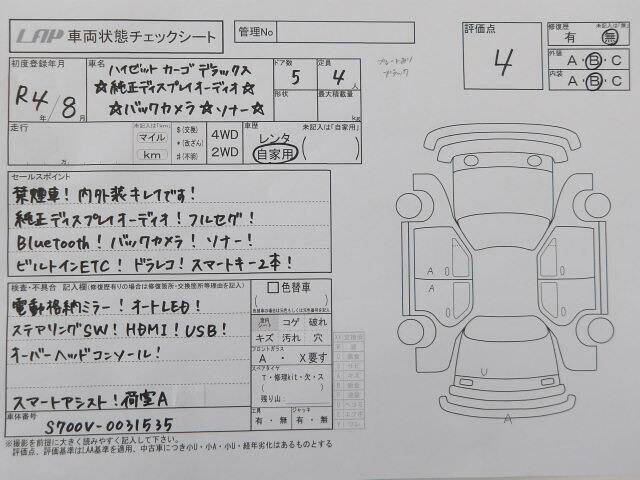 LAP 車両状態チェックシート
管理No
評価点
4
修復歴 未記入は「無」
有・無
外装
A・B・C
内装
A・B・C
初度登録年月
R4年/8月
車名
ハイゼット カーゴ デラックス
☆純正ディスプレイオーディオ☆
☆バックカメラ☆ソナー☆
ドア数
5
定員
4人
形状
最大積載量
kg
走行
万
未記入は「km」
マイル
km
$(交換)
*(改ざん)
#(不明)
4WD
2WD
車歴
未記入は「自家用」
レンタ
自家用
セールスポイント
禁煙車!内外装キレイです!
純正ディスプレイオーディオ!フルセグ!
Bluetooth!バックカメラ!ソナー!
ビルトインETC!ドラレコ!スマートキー2本!
検査・不具合 記入欄(修復歴有りの場合は修復箇所・交換箇所等理由を記入)
電動格納ミラー!オートLED!
ステアリングSW!HDMI!USB!
オーバーヘッドコンソール!
スマートアシスト!荷室A
色替車
コゲ 破れ
キズ 汚れ 穴
フロントガラス
A・X要す
スペアタイヤ
T・修理kit・欠・ス
残り山:
工具
有・無
ジャッキ
有・無
車体番号
S700V-0031535
※撮影を前提に大きく読みやすく記入して下さい。
評価点、評価基準はLAA基準を適用、中古車につき小U・小A・小U・経年劣化はあるものとする
A
A
U
A